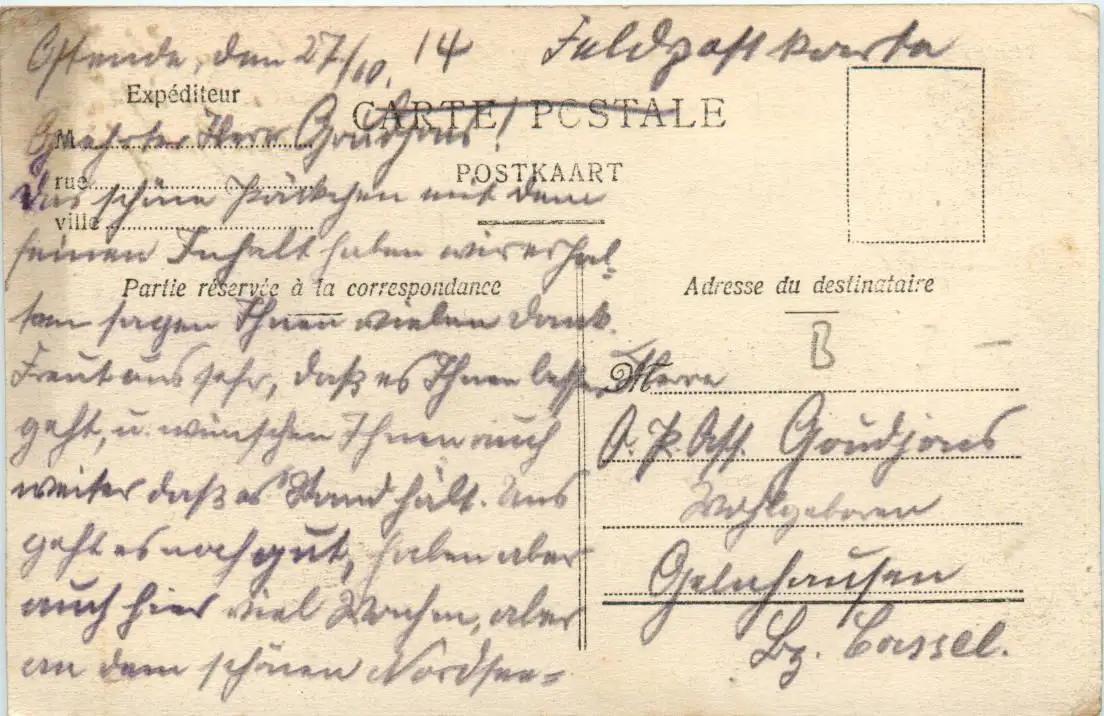 Ostende, den 27/10. 14
Feldpostkarte
Expéditeur
CARTE POSTALE
M
Geehrter Herr Goudjons!
POSTKAART
rue
Das schöne Päckchen mit dem
ville
feinen Inhalt haben wir erhal-
Partie réservée à la correspondance
ten sagen Ihnen vielen Dank.
Freut uns sehr, daß es Ihnen besser
geht, u. wünschen Ihnen auch
weiter daß es Stand hält. Uns
geht es noch gut, haben aber
auch hier viel Wachen, aber
an dem schönen Nordsee=
Adresse du destinataire
B
M Herrn
O. P. Ass. Goudjons
Wohlgeboren
Gelnhausen
Bz. Cassel.